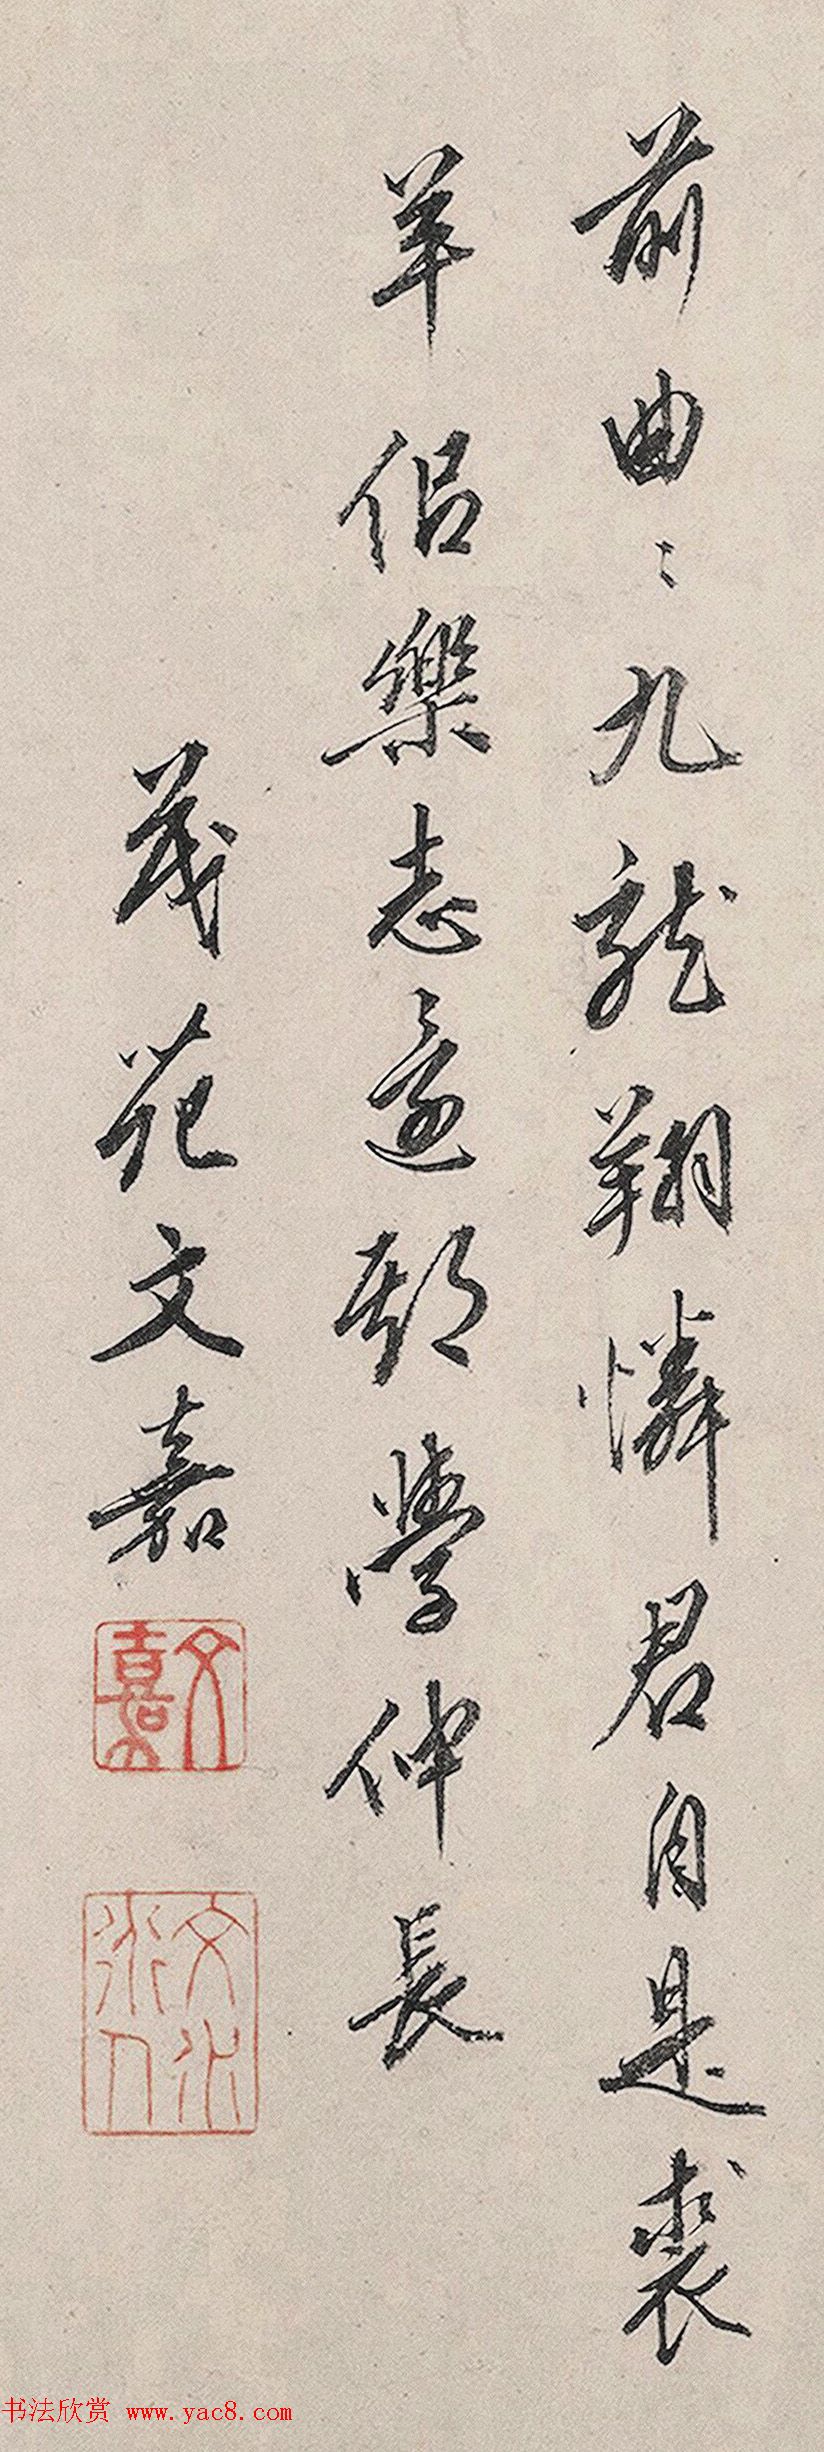 前曲〻九龍翔憐君自是裘
羊侣樂志還却學仲長
茂苑文嘉
文嘉
文水
水人
书法欣赏 www.yac8.com